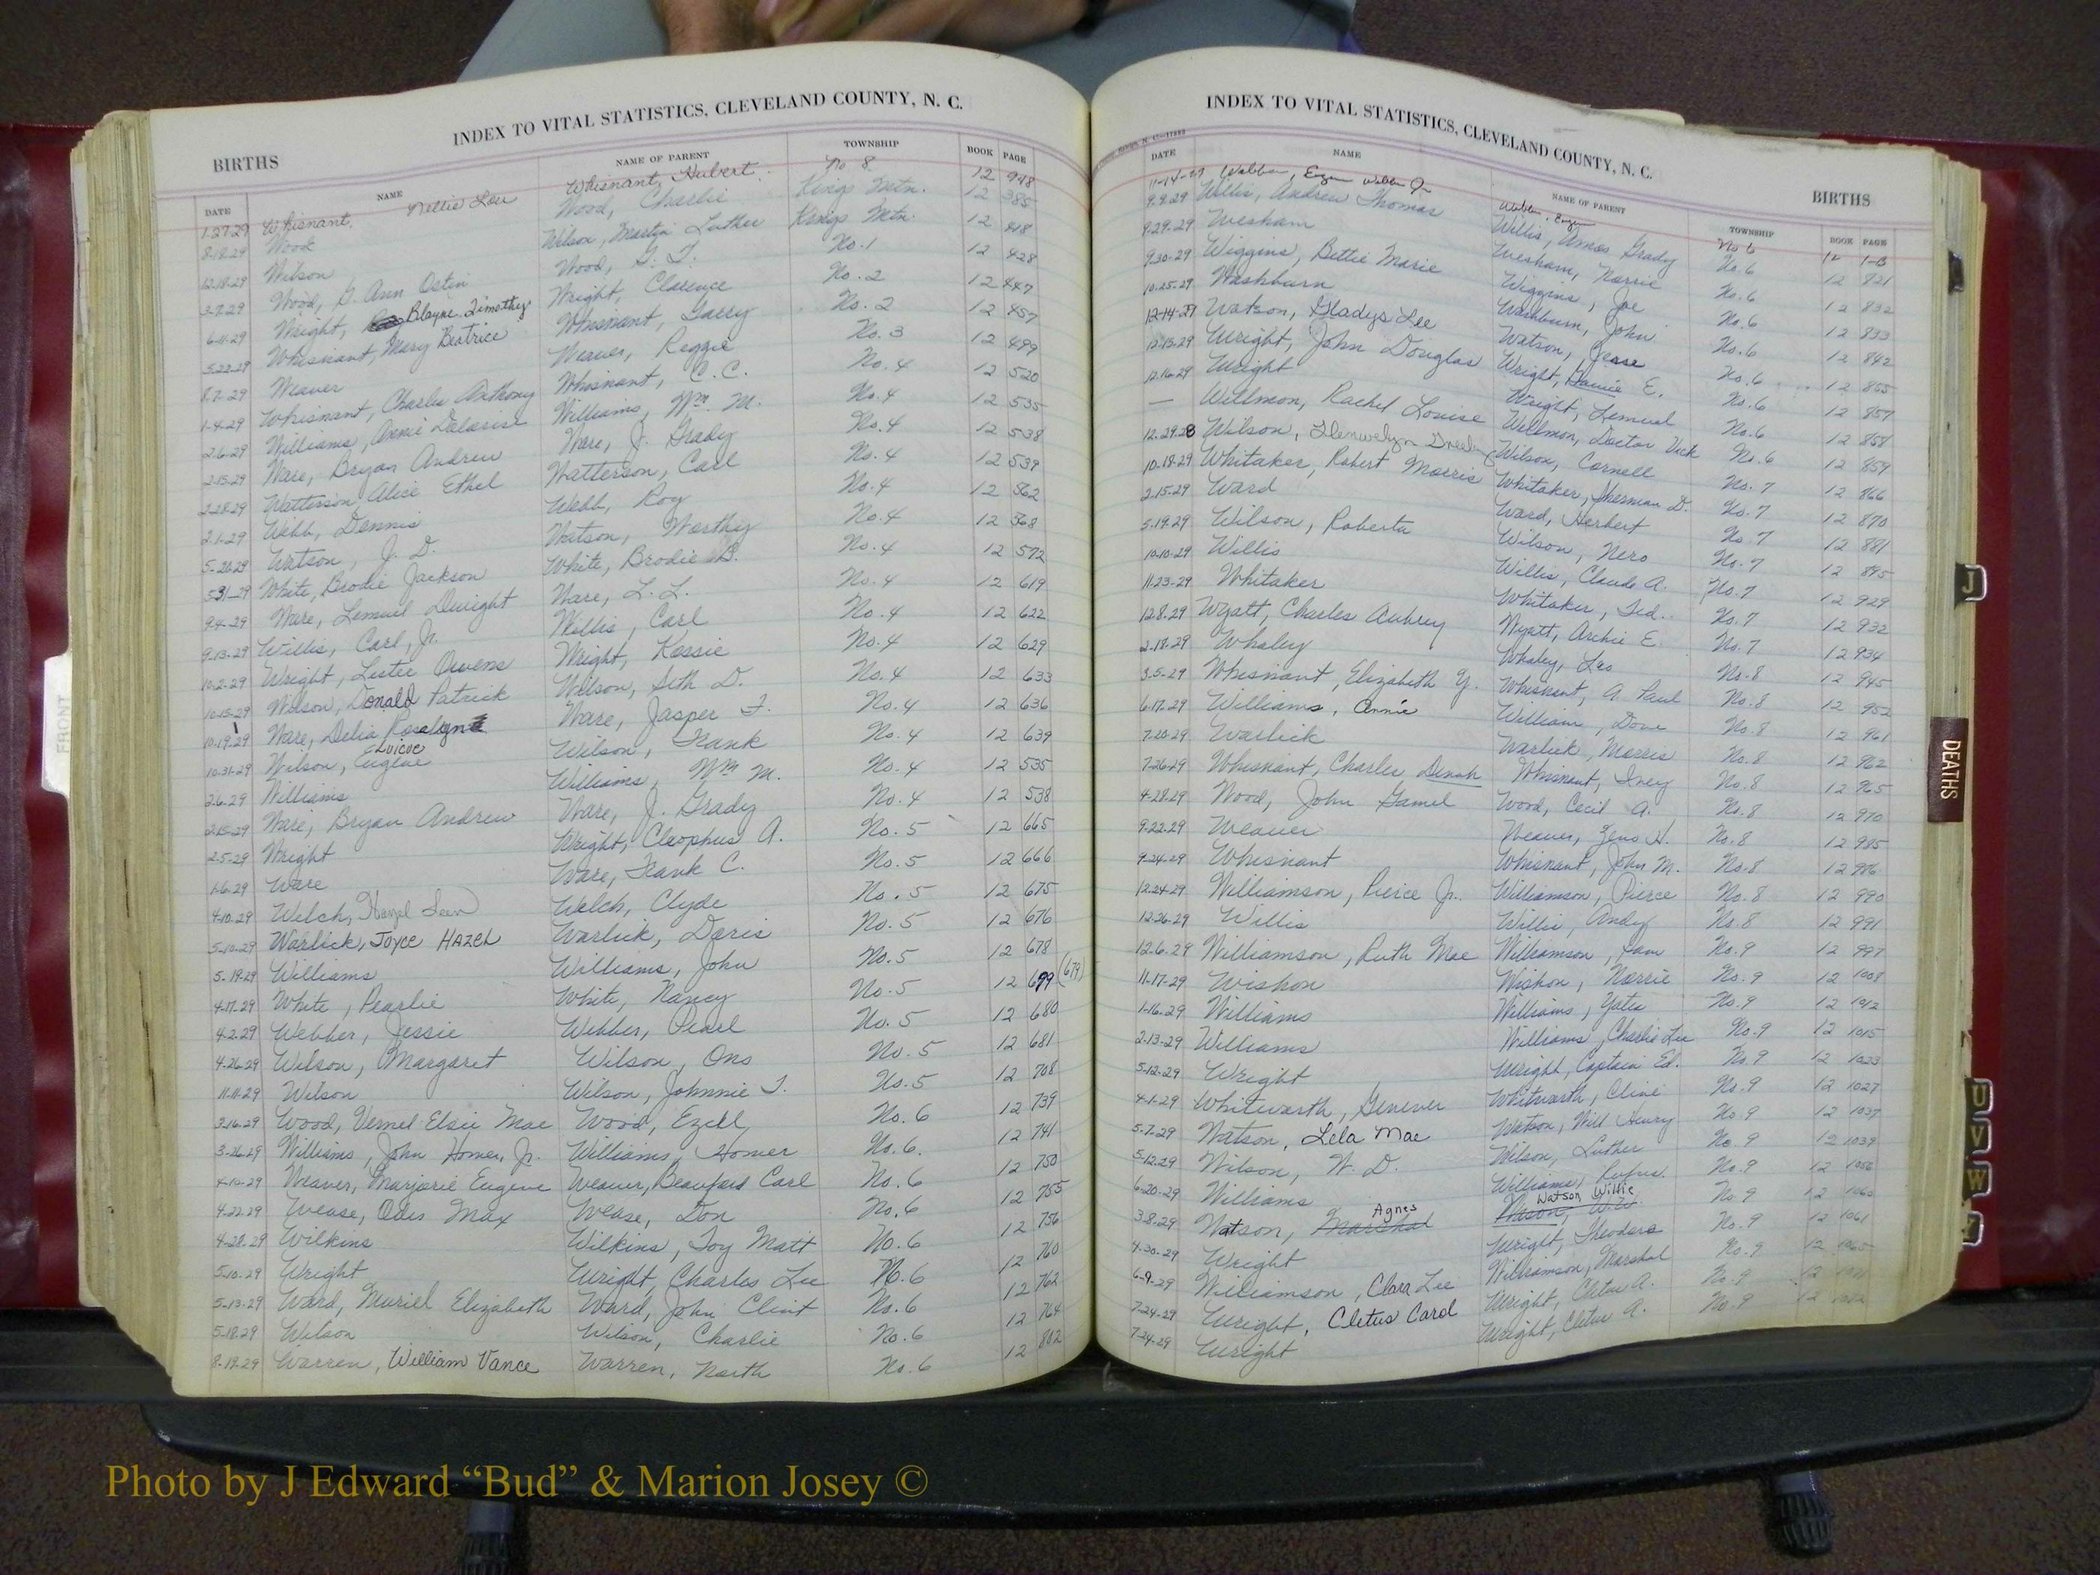 INDEX TO VITAL STATISTICS, CLEVELAND COUNTY, N. C.
BIRTHS
DATE NAME NAME OF PARENT TOWNSHIP BOOK PAGE
1-27-29 Whisnant, Nellie Lou Whisnant, Hubert No 8 12 948
8-18-29 Wood Wood, Charlie Kings Mtn. 12 385
12-18-29 Wilson Wilson, Martin Luther Kings Mtn. 12 418
3-7-29 Wood, G. Ann Ostin Wood, G. T. No. 1 12 428
6-11-29 Wright, Blayne Timothy Wright, Clarence No. 2 12 447
5-22-29 Whisnant, Mary Beatrice Whisnant, Garry No. 2 12 457
8-7-29 Weaver Weaver, Reggie No. 3 12 499
1-4-29 Whisnant, Charles Anthony Whisnant, C. C. No. 4 12 520
2-6-29 Williams, Annie Delarise Williams, Wm. M. No. 4 12 535
2-15-29 Ware, Bryan Andrew Ware, J. Grady No. 4 12 538
2-28-29 Watterson, Alice Ethel Watterson, Carl No. 4 12 539
2-1-29 Webb, Dennis Webb, Roy No. 4 12 562
5-26-29 Watson, J. D. Watson, Worthy No. 4 12 568
5-31-29 White, Brodie Jackson White, Brodie B. No. 4 12 572
9-4-29 Ware, Lemuel Dwight Ware, L. L. No. 4 12 619
9-13-29 Willis, Carl, Jr. Willis, Carl No. 4 12 622
10-2-29 Wright, Lester Owens Wright, Kossie No. 4 12 629
10-15-29 Wilson, Donald Patrick Wilson, Seth D. No. 4 12 633
10-19-29 Ware, Delia Rosalyn Ware, Jasper F. No. 4 12 636
10-31-29 Wilson, Eugloe Luicoe Wilson, Frank No. 4 12 639
2-6-29 Williams Williams, Wm M. No. 4 12 535
2-15-29 Ware, Bryan Andrew Ware, J. Grady No. 4 12 538
2-5-29 Wright Wright, Cleophus A. No. 5 12 665
1-6-29 Ware Ware, Frank C. No. 5 12 666
4-10-29 Welch, Hazel Leen Welch, Clyde No. 5 12 675
5-10-29 Warlick, JOYCE HAZEL Warlick, Doris No. 5 12 676
5-19-29 Williams Williams, John No. 5 12 678
4-17-29 White, Pearlie White, Nancy No. 5 12 679 (679)
4-2-29 Webber, Jessie Webber, Pearl No. 5 12 680
4-26-29 Wilson, Margaret Wilson, Ono No. 5 12 681
11-11-29 Wilson Wilson, Johnnie T. No. 5 12 708
3-16-29 Wood, Vernel Elsie Mae Wood, Ezell No. 6 12 739
3-26-29 Williams, John Homer, Jr. Williams, Homer No. 6. 12 741
4-10-29 Weaver, Marjorie Eugene Weaver, Beauford Carl No. 6 12 750
4-22-29 Wease, Odis Max Wease, Don No. 6 12 755
4-28-29 Wilkins Wilkins, Toy Matt No. 6 12 756
5-10-29 Wright Wright, Charles Lee No. 6 12 760
5-13-29 Ward, Muriel Elizabeth Ward, John Clint No. 6 12 762
5-18-29 Wilson Wilson, Charlie No. 6 12 764
8-19-29 Warren, William Vance Warren, North No. 6 12 802
INDEX TO VITAL STATISTICS, CLEVELAND COUNTY, N. C.
BIRTHS
DATE NAME NAME OF PARENT TOWNSHIP BOOK PAGE
Webber, No 6 12 1-B
9-9-29 Willis, Andrew Thomas Willis, Amos Grady No. 6 12 821
9-29-29 Wesham Wesham, Norrie No. 6 12 832
9-30-29 Wiggins, Bettie Marie Wiggins, Joe No. 6 12 833
10-25-29 Washburn Washburn, John No. 6 12 842
12-14-29 Watson, Gladys Lee Watson, Jesse No. 6 12 855
12-15-29 Wright, John Douglas Wright, E. No. 6 12 857
12-16-29 Wright Wright, Lemuel No. 6 12 858
— Willmon, Rachel Louise Wellmon, Doctor Vick No. 6 12 859
12-29-28 Wilson, Wilson, Cornell No. 7 12 866
10-18-29 Whitaker, Robert Morris Whitaker, Sherman D. No. 7 12 870
2-15-29 Ward Ward, Herbert No. 7 12 881
5-19-29 Wilson, Roberta Wilson, Nero No. 7 12 895
10-10-29 Willis Willis, Claude A. No. 7 12 929
11-23-29 Whitaker Whitaker, Ted. No. 7 12 932
12-8-29 Wyatt, Charles Aubrey Wyatt, Archie E. No. 7 12 934
2-18-29 Whaley Whaley, Leo No. 8 12 945
3-5-29 Whisnant, Elizabeth Y. Whisnant, A. Paul No. 8 12 952
6-17-29 Williams, Annie William, Dove No. 8 12 961
7-20-29 Warlick Warlick, Morris No. 8 12 962
7-26-29 Whisnant, Charles Denah Whisnant, Ivey No. 8 12 965
4-28-29 Wood, John Gamel Wood, Cecil A. No. 8 12 970
9-22-29 Weaver Weaver, Zeno H. No. 8 12 985
9-24-29 Whisnant Whisnant, John M. No. 8 12 986
12-24-29 Williamson, Pierce Jr. Williamson, Pierce No. 8 12 990
12-26-29 Willis Willis, Andy No. 8 12 991
12-6-29 Williamson, Ruth Mae Williamson, Sam No. 9 12 997
11-17-29 Wishon Wishon, Norrie No. 9 12 1008
1-16-29 Williams Williams, Yates No. 9 12 1012
2-13-29 Williams Williams, Charlie Lee No. 9 12 1015
5-12-29 Wright Wright, Captain Ed. No. 9 12 1023
4-1-29 Whitworth, Genever Whitworth, Cline No. 9 12 1027
5-7-29 Watson, Lela Mae Watson, Will Henry No. 9 12 1037
5-12-29 Wilson, W. D. Wilson, Luther No. 9 12 1039
6-20-29 Williams Williams, Rufus No. 9 12 1056
3-8-29 Watson, Marshal Agnes Watson Willie No. 9 12 1060
4-30-29 Wright Wright, Theodore No. 9 12 1061
6-9-29 Williamson, Clara Lee Williamson, Marshal No. 9 12 1065
7-24-29 Wright, Cletus Carol Wright, Cletus A. No. 9 12
7-24-29 Wright Wright, Cletus A. No. 9 12
FRONT
J
DEATHS
U
V
W
Photo by J Edward “Bud” & Marion Josey ©